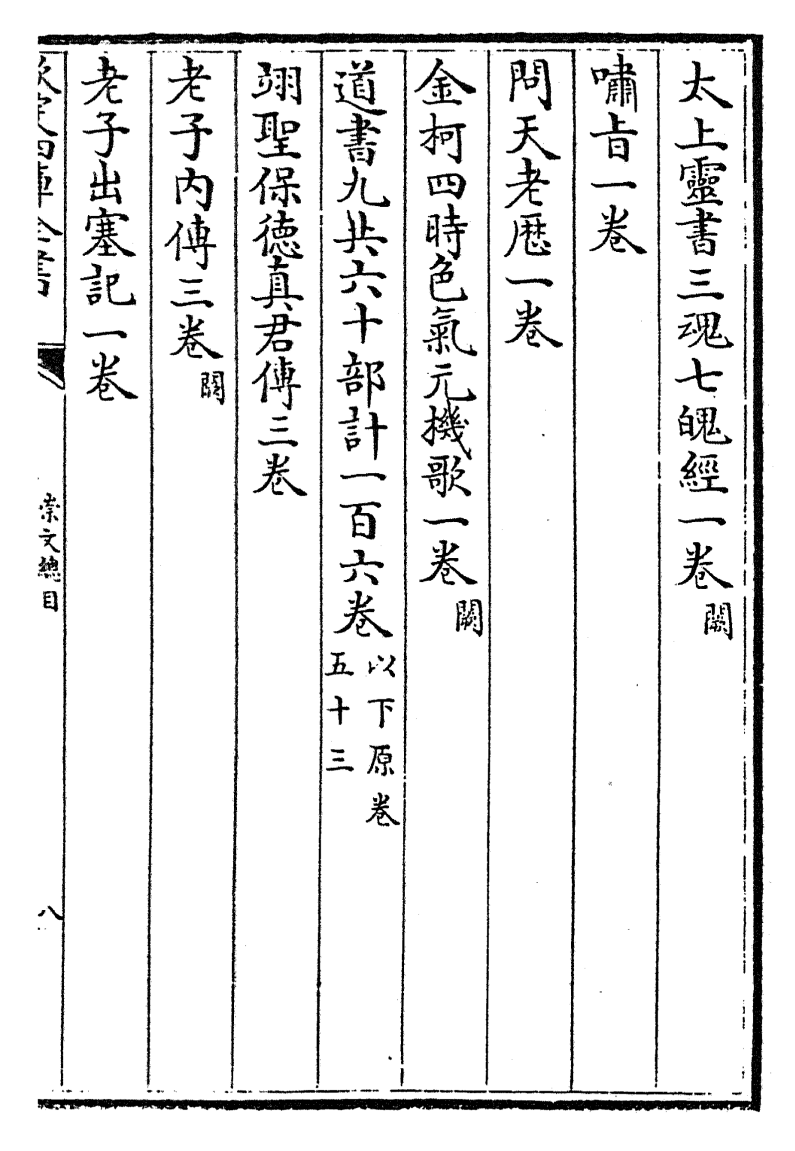 太上靈書三魂七魄經一卷闕
嘯旨一卷
問天老厯一卷
金柯四時色氣元機歌一卷闕
道書九共六十部計一百六卷以下原卷五十三
翊聖保德真君傳三卷
老子内傳三卷闕
老子出塞記一卷
欽定四庫全書
崇文總目
八